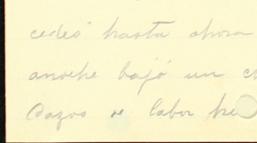 cedes hasta ahora
anoche bajó un c
Pagos de labor he